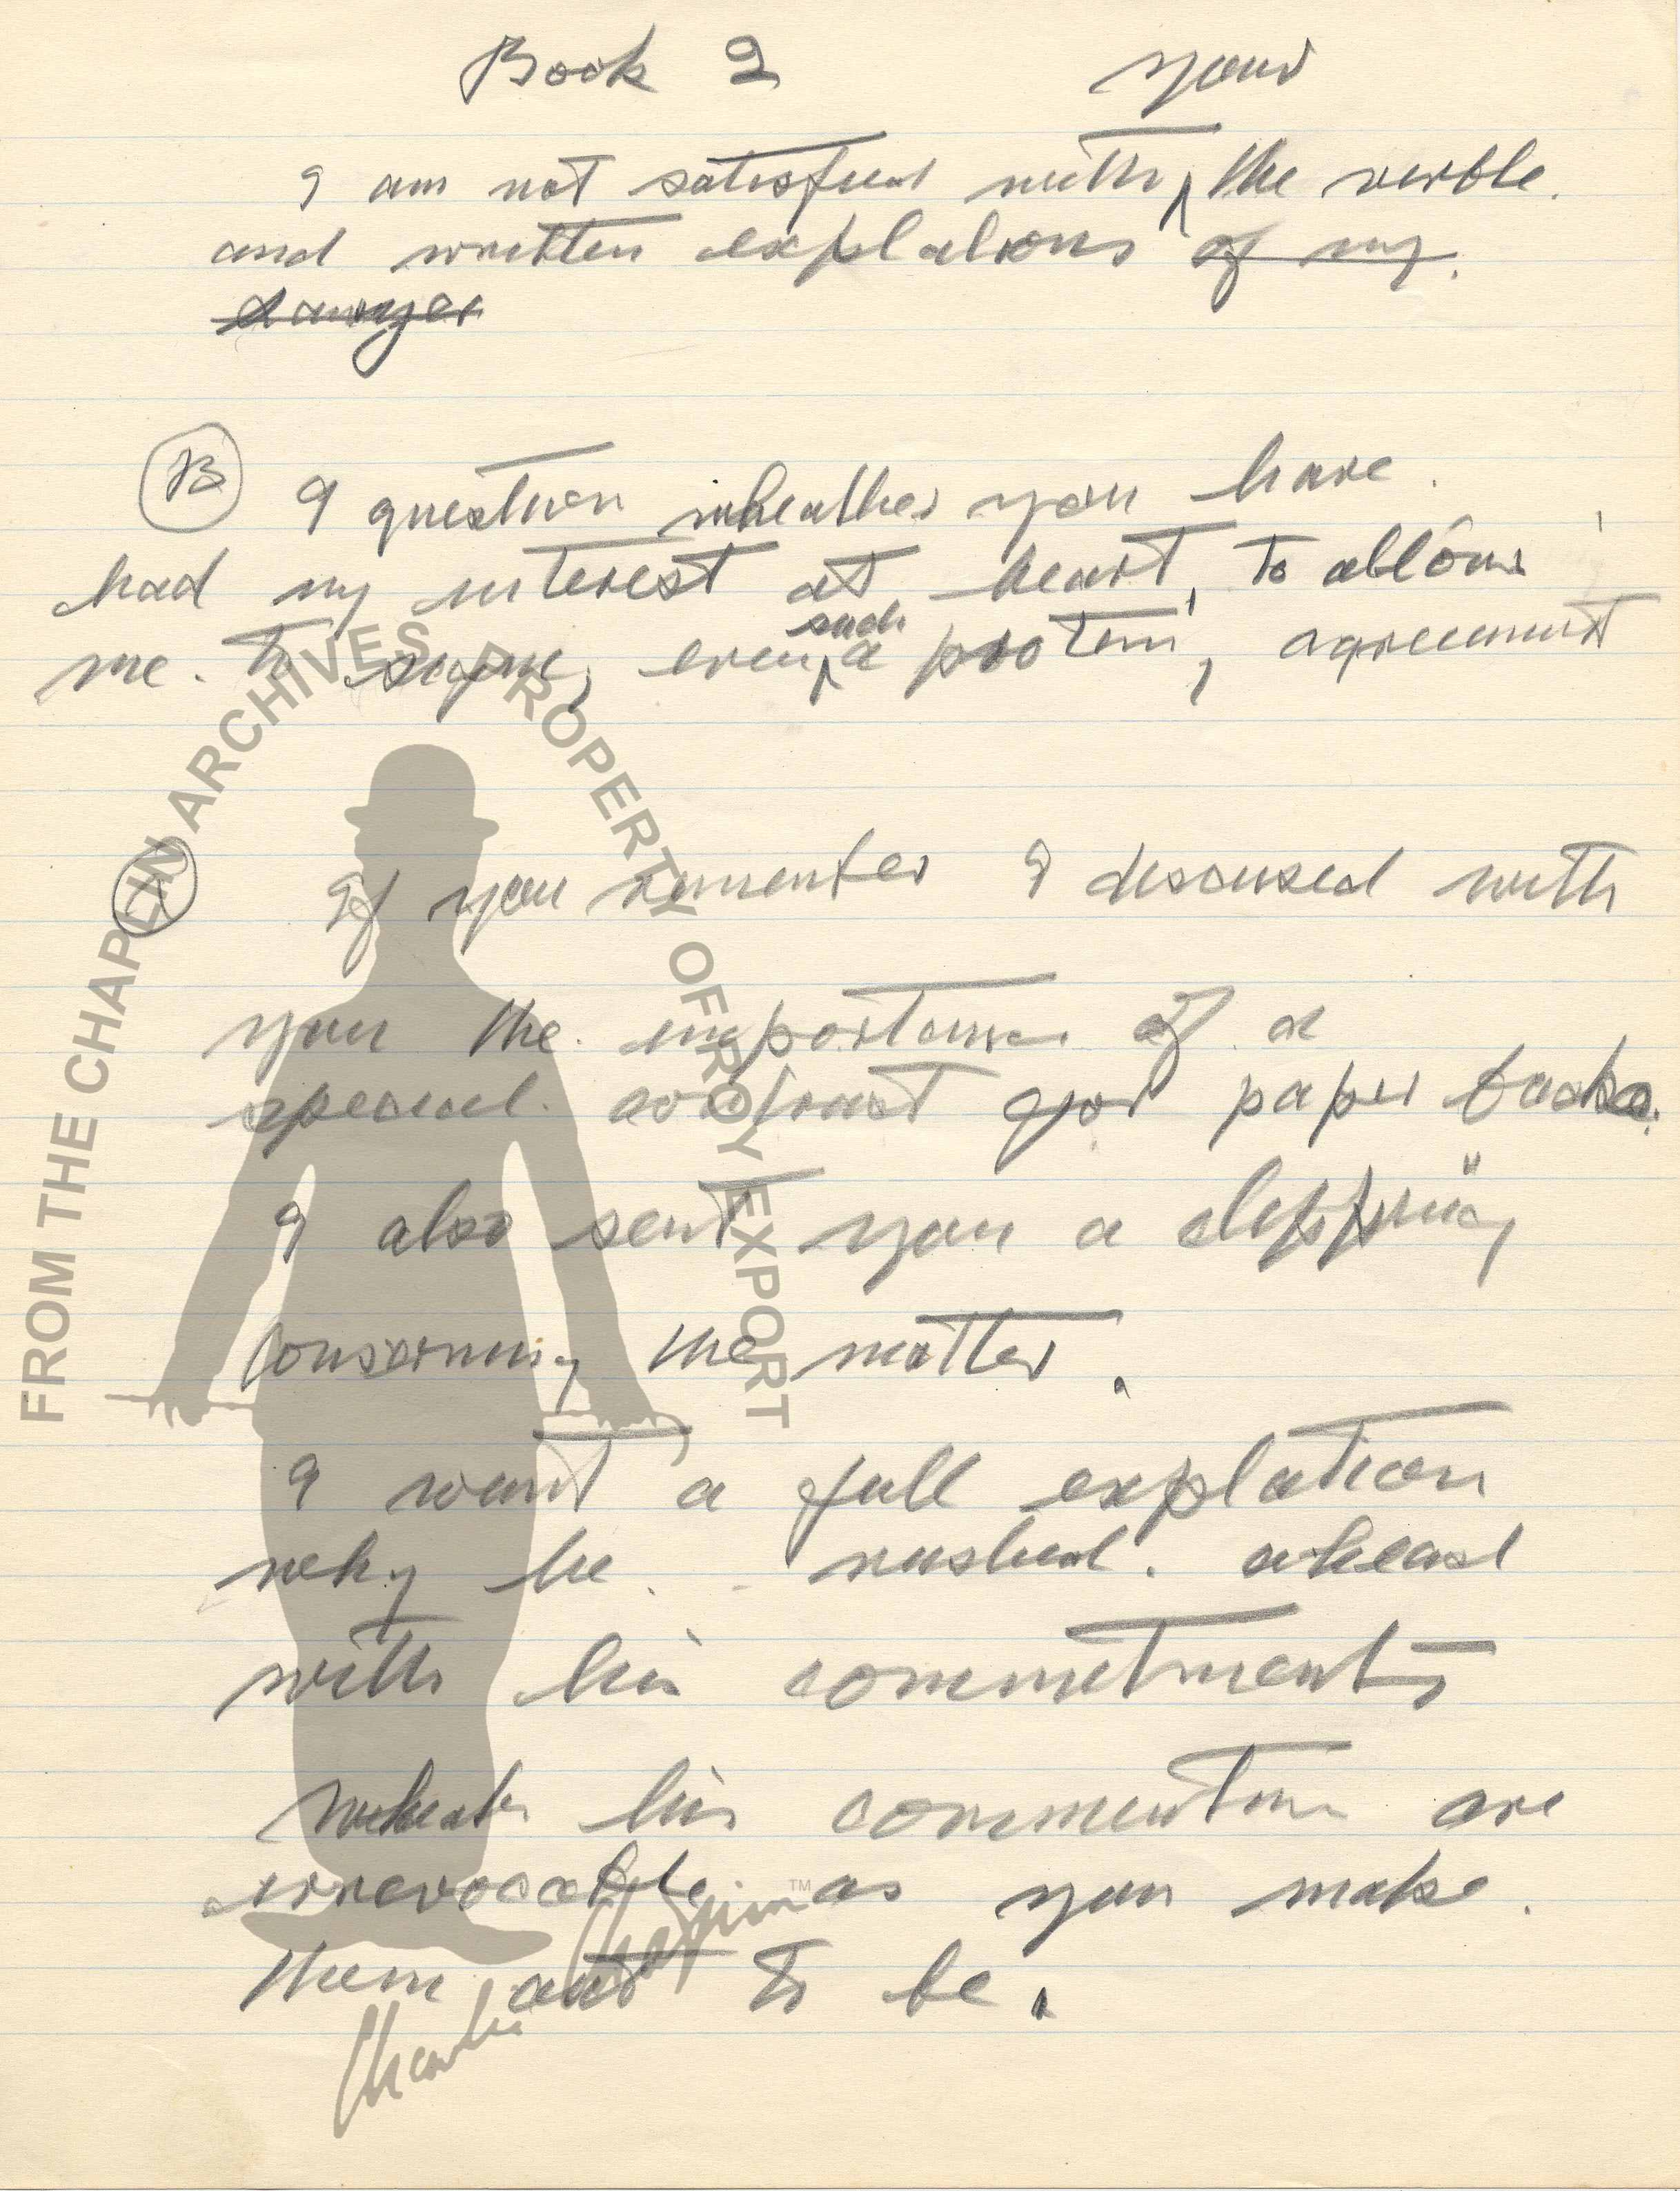 Book 2 your
I am not satisfied with ^ the verble.
and written explations of my.
Lawyer
B I question wheather you have.
had my interest at heart, to allow
such
me. to signe, even a pro tem, agreement
If you rementer I descused with
you the importance of a
special. contract for paper backs.
I also sent you a clippring
Conserning the matter.
I want a full explation
why he. rushed. ahead
with his commitments
wheather his commentions are
irrevocable. as you make.
them out to be.
FROM THE CHAPLIN ARCHIVES, PROPERTY OF ROY EXPORT
Charlie Chaplin ™